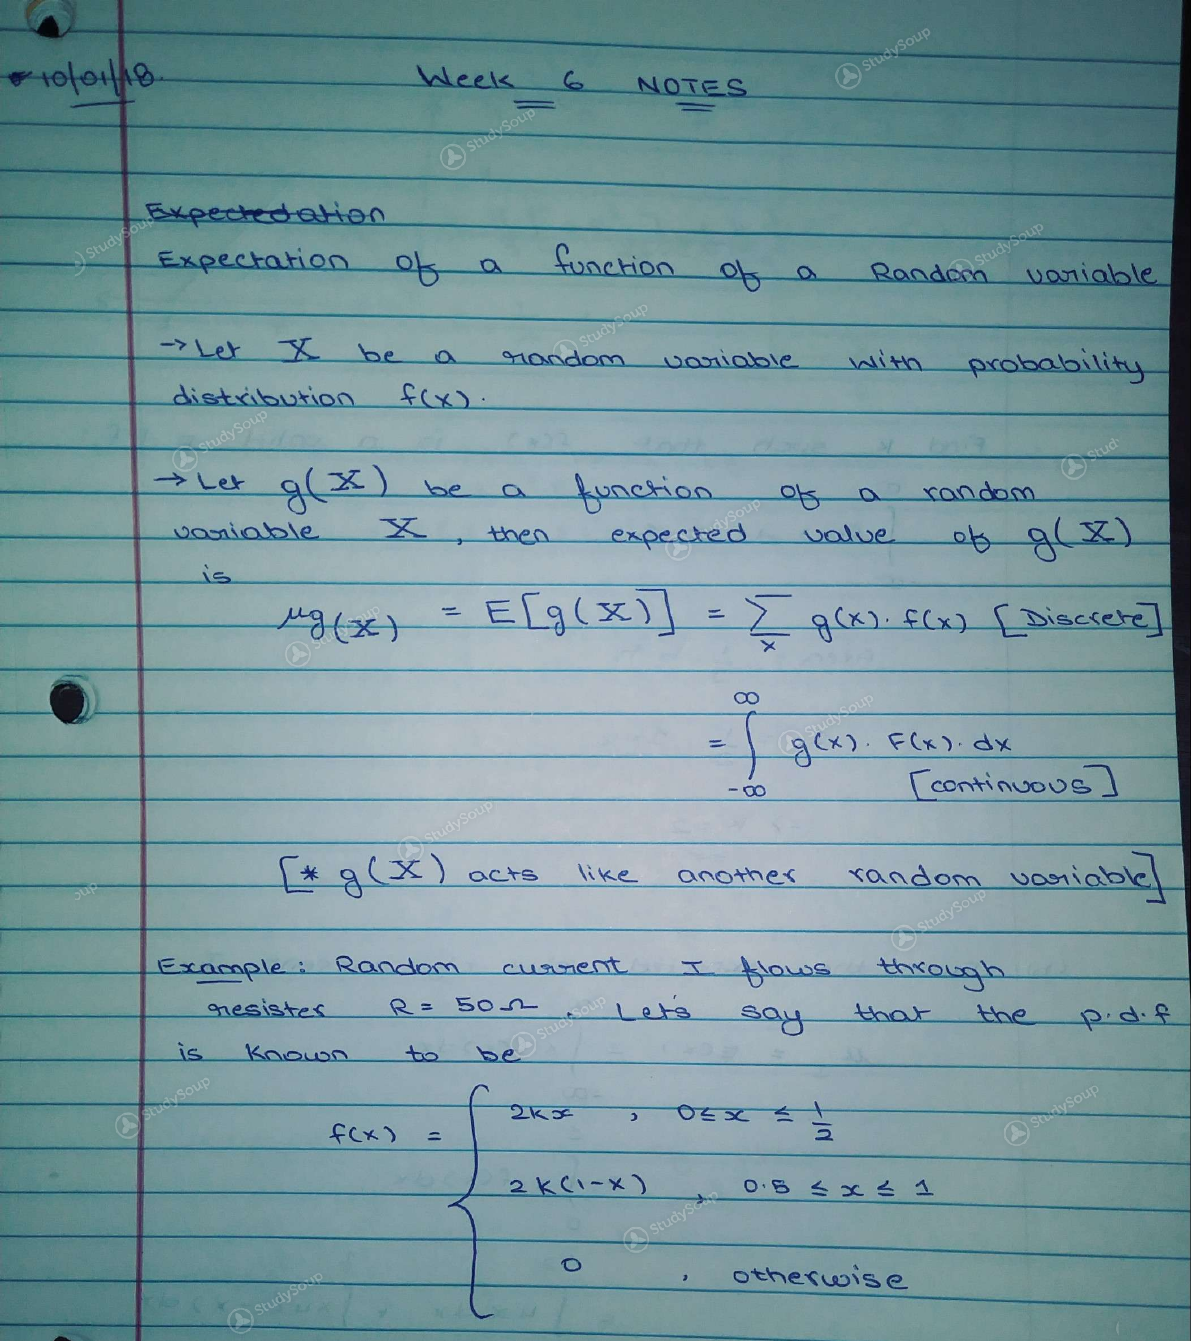 10/01/18 Week 6 NOTES
Expectedation
Expectation of a function of a Random variable
→ Let X be a random variable with probability
distribution f(x).
→ Let g(X) be a function of a random
variable X, then expected value of g(X)
is
μg(X) = E[g(X)] = ∑x g(x). f(x) [Discrete]
= ∫-∞^∞ g(x). F(x). dx
[continuous]
[* g(X) acts like another random variable]
Example: Random current I flows through
resister R = 50Ω. Let's say that the p.d.f
is known to be
f(x) = { 2kx , 0≤x ≤ 1/2
2k(1-x) , 0.5 ≤ x ≤ 1
0 , otherwise
StudySoup